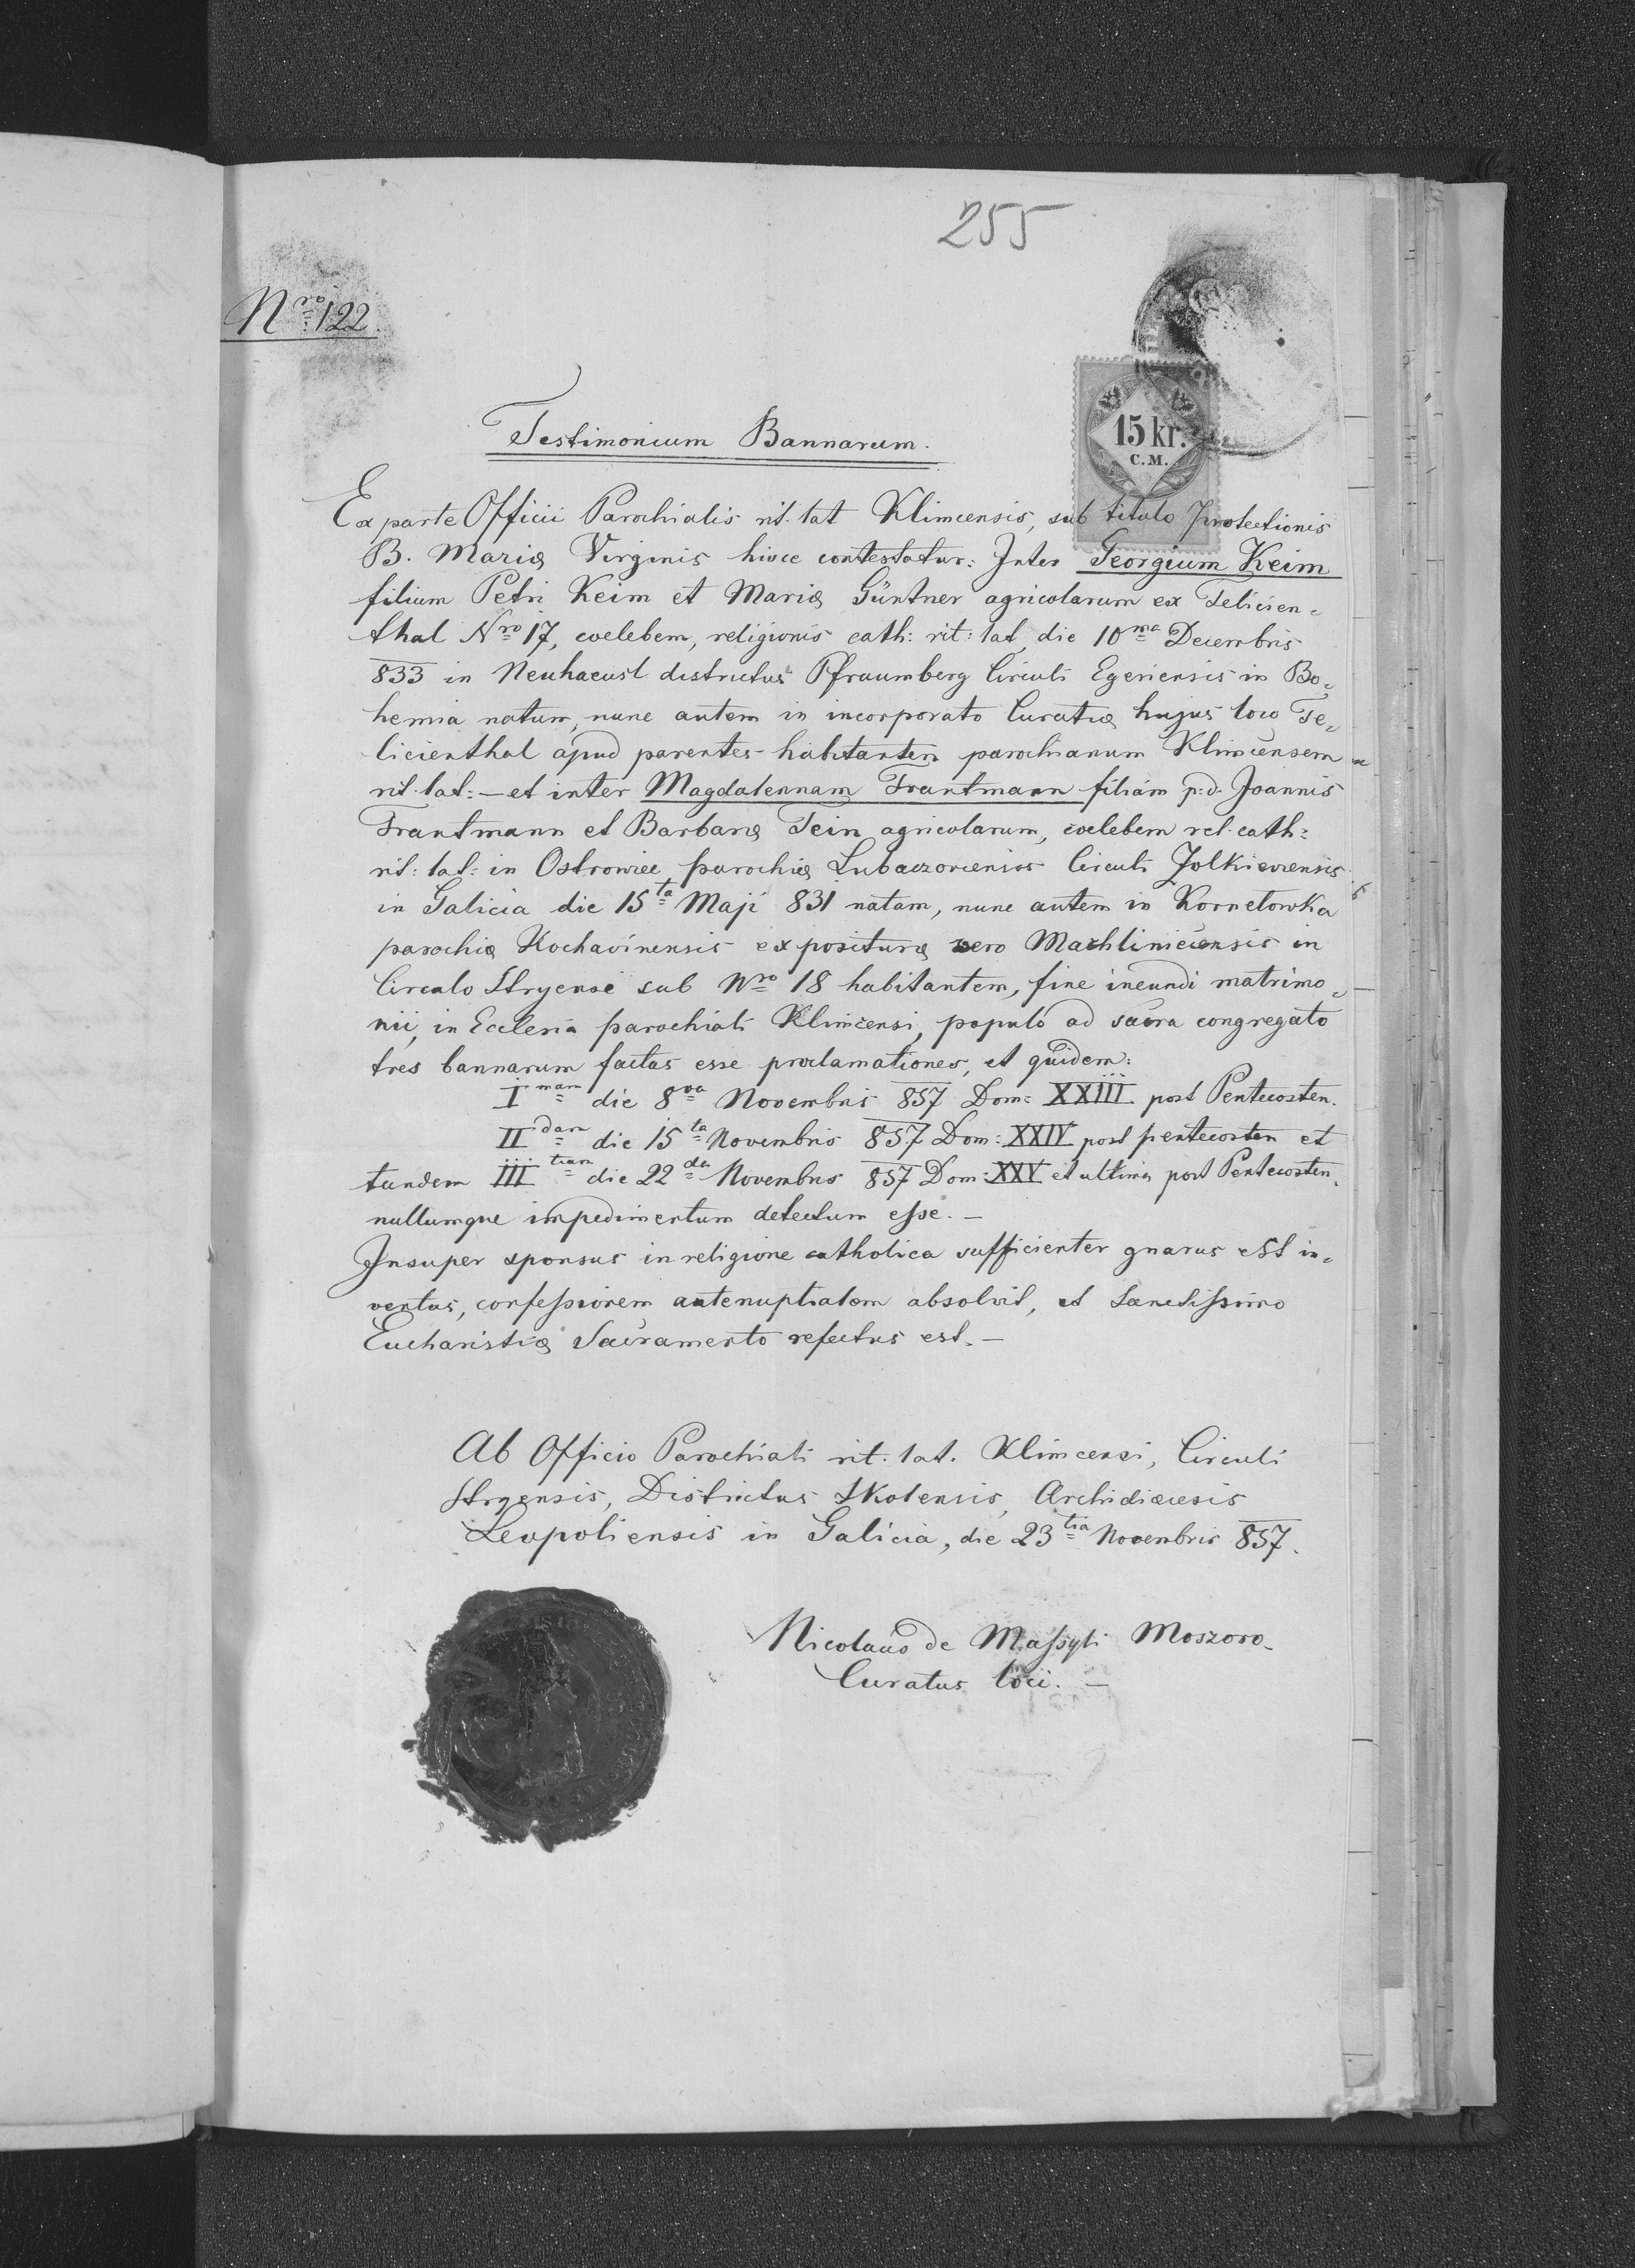 255
Nro 122.
15 kr.
C.M.
Testimonium Bannarum.
Ex parte Officii Parochialis rit. lat Klimcensis, sub titulo Protectionis
B. Mariæ Virginis hisce contestatur: Inter Georgium Keim
filium Petri Keim et Mariæ Güntner agricolarum ex Felicien=
thal Nro 17, coelebem, religionis cath: rit: lat, die 10ma Decembris
833 in Neuhaeusl districtus Pfraumberg Circuli Egeriensis in Bo=
hemia natum, nunc autem in incorporato Curatiæ hujus loco Fe=
licienthal apud parentes habitantem parochianum Klimcensem
rit. lat: — et inter Magdalennam Trautmann filiam p. d. Joannis
Trautmann et Barbaræ Tein agricolarum, coelebem rel. cath:
rit: lat: in Ostrowiec parochiæ Lubaczoviensis Circuli Zolkieviensis
in Galicia die 15ta Maji 831 natam, nunc autem in Kornelowka
parochiæ Kochavinensis expositurae vero Machliniecensis in
Circulo Stryensi sub Nro 18 habitantem, fine ineundi matrimo=
nii, in Ecclesia parochiali Klimcensi, populo ad sacra congregato
tres bannarum factas esse proclamationes, et quidem:
I mam die 8va Novembris 857 Dom: XXIII post Pentecosten.
II dam die 15ta Novembris 857 Dom: XXIV post pentecosten et
tandem III tiam die 22da Novembris 857 Dom: XXV et ultima post Pentecosten,
nullumque impedimentum detectum esse. —
Insuper sponsus in religione catholica sufficienter gnarus est in=
ventus, confessionem antenuptialem absolvit, et Sanctissimo
Eucharistiæ Sacramento refectus est. —
Ab Officio Parochiali rit. lat. Klimcensi, Circuli
Stryensis, Districtus Skolensis, Archidiœcesis
Leopoliensis in Galicia, die 23tia Novembris 857.
Nicolaus de Massyli Moszoro
Curatus loci. —